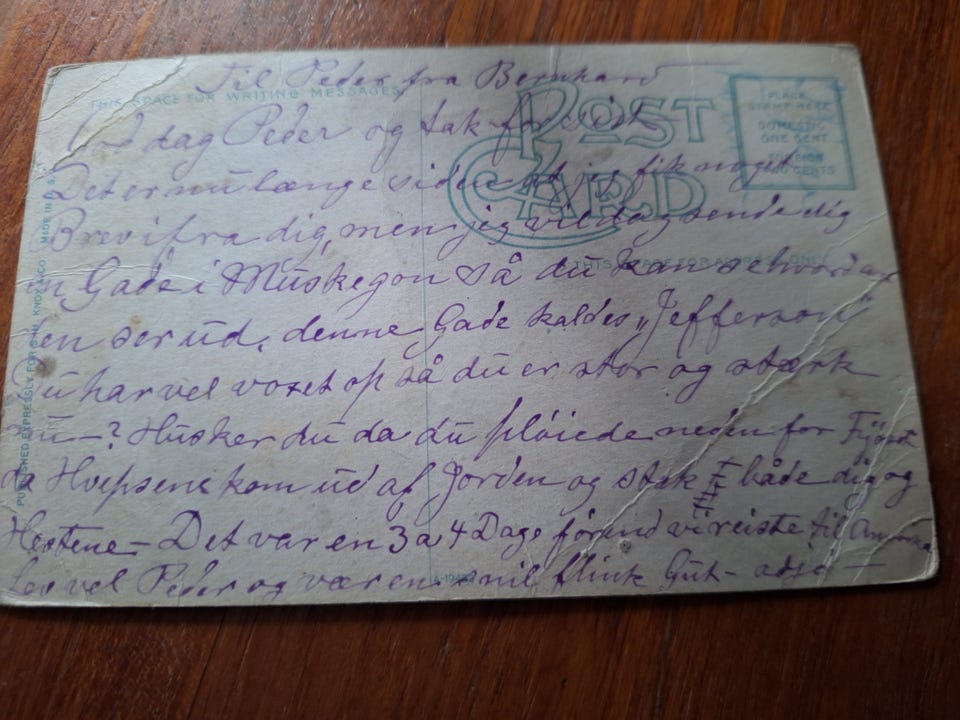 Til Peder fra Bernhard
THIS SPACE FOR WRITING MESSAGES
POST CARD
PLACE
STAMP HERE
DOMESTIC
ONE CENT
CENTS
God dag Peder og tak for sidst
Det er nu længe siden at jeg fik noget
Brev ifra dig, men jeg vil dog sende dig
en Gade i Muskegon så du kan se hvordan
THIS SPACE FOR ADDRESS ONLY
den ser ud, denne Gade kaldes „Jefferson"
Du har vel voxet op så du er stor og stærk
nu -? Husker du da du pløiede neden for
da Hvepsene kom ud af Jorden og stak både dig og
Hestene - Det var en 3 a 4 Dage førend vi reiste til Amerika
Lev vel Peder og vær en snil flink Gut - adjø -
PUBLISHED EXPRESSLY FOR S.H. KNOX & CO. MADE IN U.S.A.